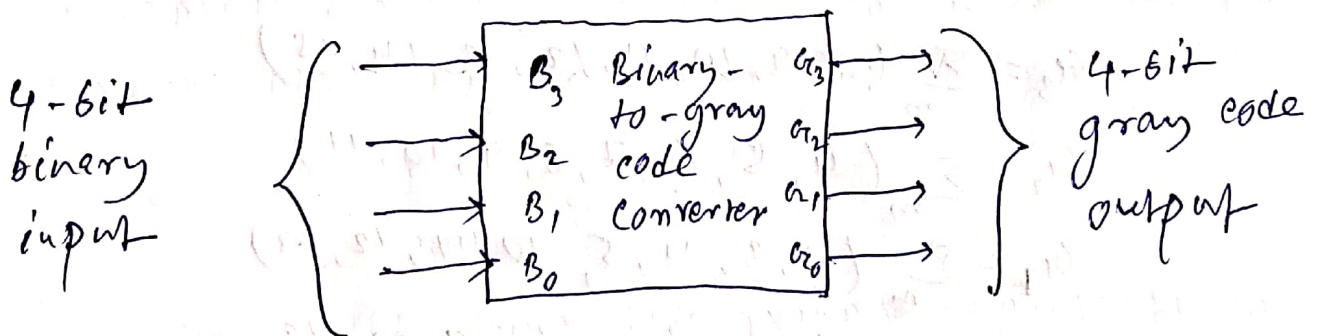 4-bit
binary
input
B₃
B₂
B₁
B₀
Binary-
to-gray
code
converter
G₃
G₂
G₁
G₀
4-bit
gray code
output